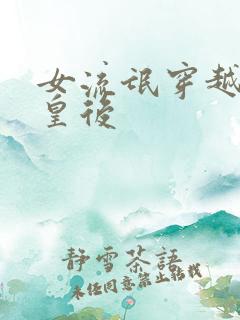 女流氓穿越
皇後
靜雪茶語
未经同意禁止转载